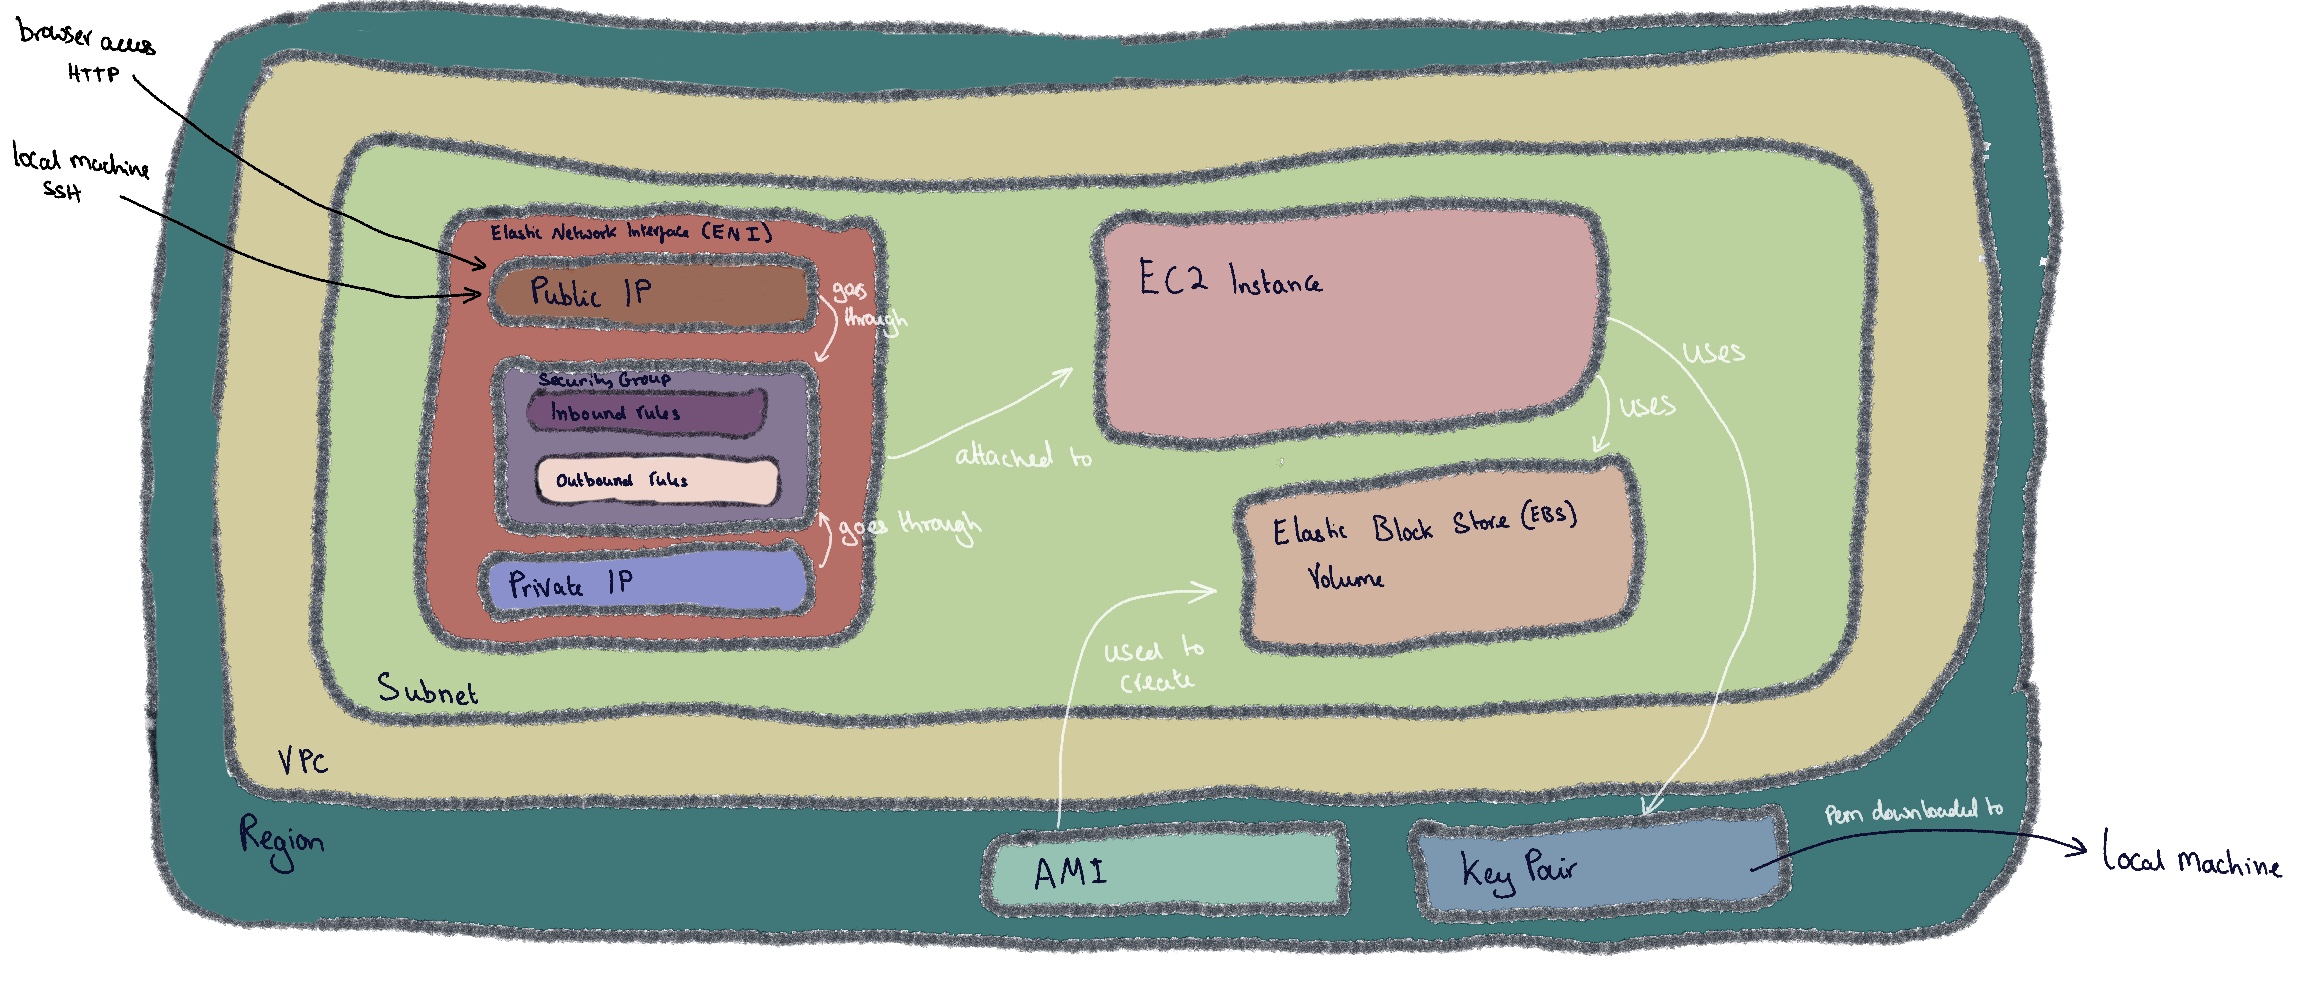 browser access
HTTP
local machine
SSH
Elastic Network Interface (ENI)
Public IP
goes
through
Security Group
Inbound rules
Outbound rules
goes through
Private IP
attached to
EC2 Instance
uses
uses
Elastic Block Store (EBS)
Volume
used to
create
Subnet
VPC
Region
AMI
Key Pair
Pem downloaded to
Local Machine